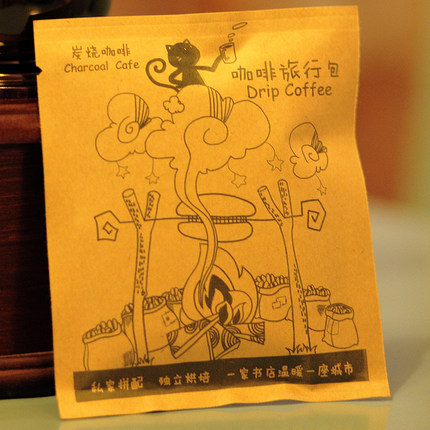 炭烧咖啡
Charcoal Cafe
咖啡旅行包
Drip Coffee
私家拼配 独立烘焙 一家书店温暖一座城市